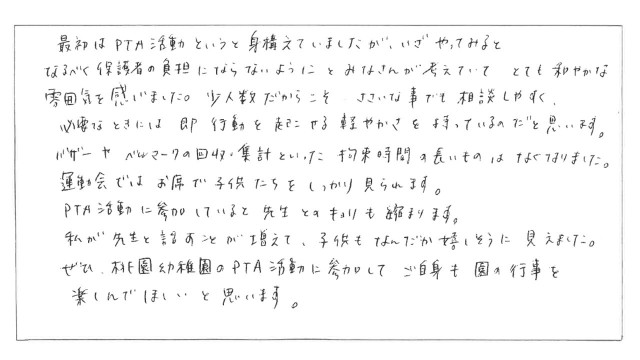 最初はPTA活動というと身構えていましたが、いざやってみると
なるべく保護者の負担にならないようにとみなさんが考えていて とても和やかな
雰囲気を感じました。少人数だからこそ ささいな事でも相談しやすく、
必要なときには即行動を起こせる軽やかさを持っているのだと思います。
バザーやベルマークの回収・集計といった拘束時間の長いものはなくなりました。
運動会ではお席で子供たちをしっかり見られます。
PTA活動に参加していると先生とのキョリも縮まります。
私が先生と話すことが増えて、子供もなんだか嬉しそうに見えました。
ぜひ、桃園幼稚園のPTA活動に参加して ご自身も園の行事を
楽しんでほしいと思います。